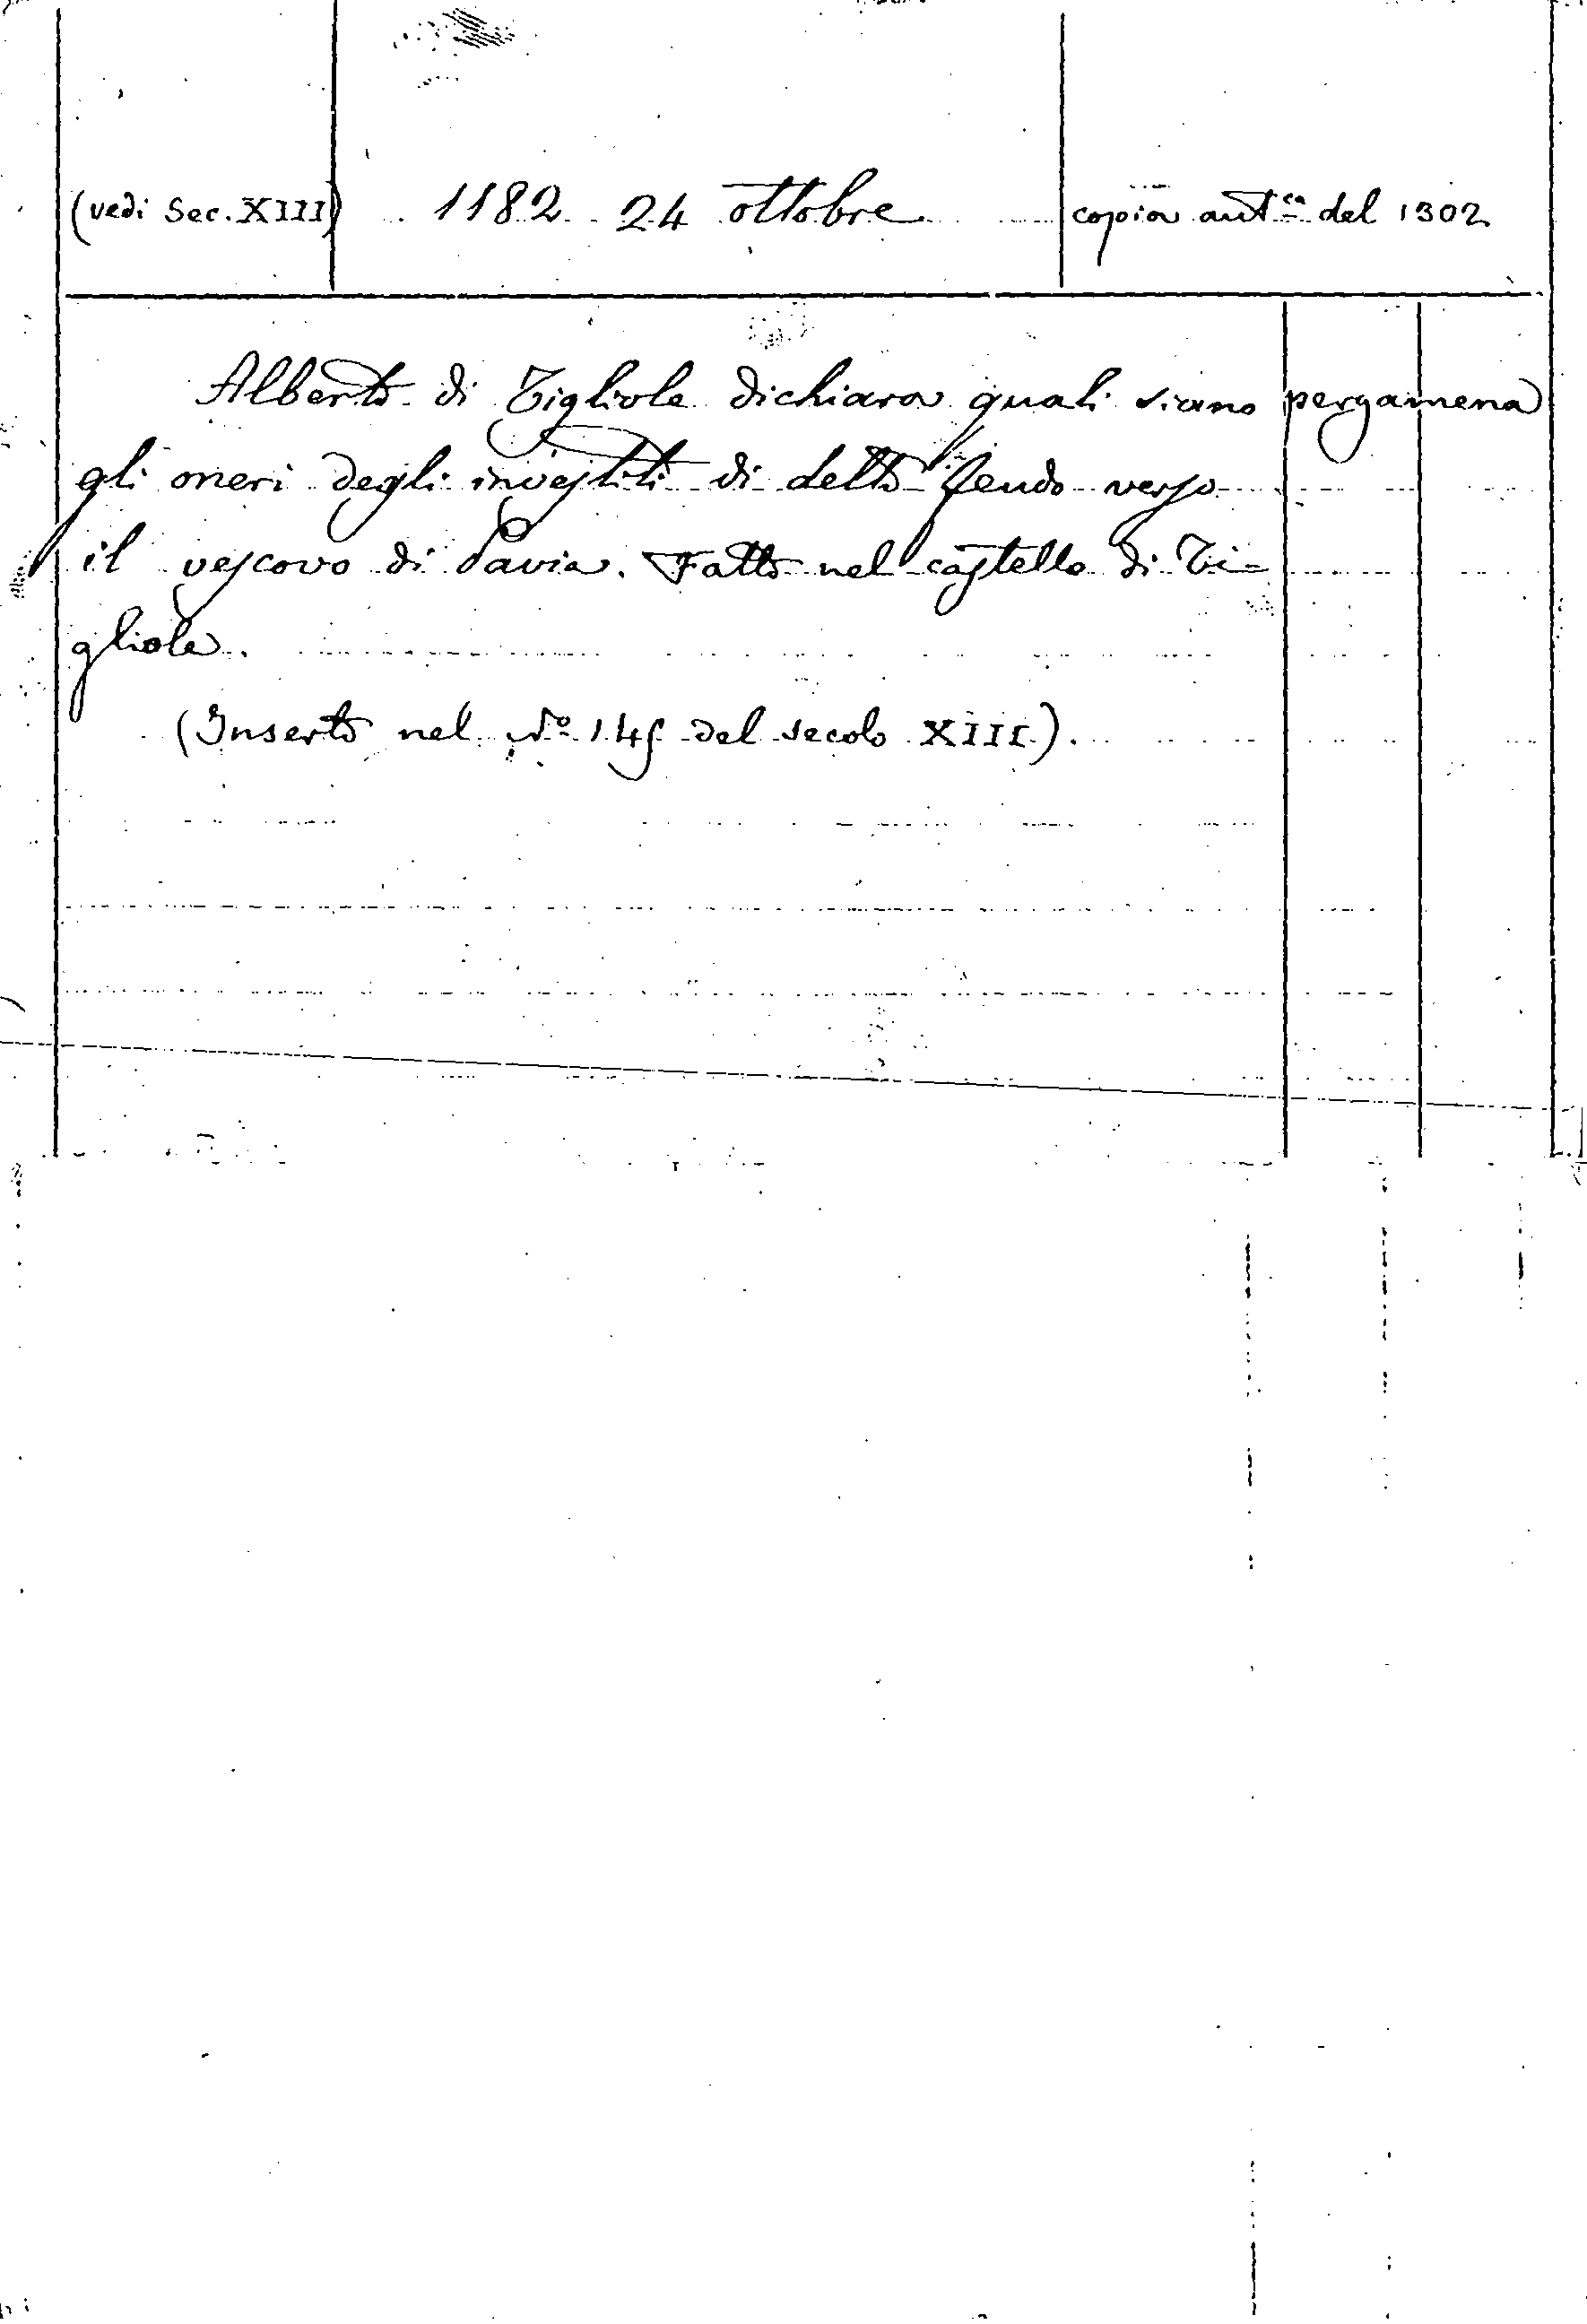 (vedi Sec. XIII) 1182 24 ottobre copia aut.ca del 1302
Alberto di Tigliole dichiara quali siano pergamena
gli oneri degli investiti di detto feudo verso
il vescovo di Pavia. Fatto nel castello di Ti-
gliole.
(Inserto nel No 145 del secolo XIII).